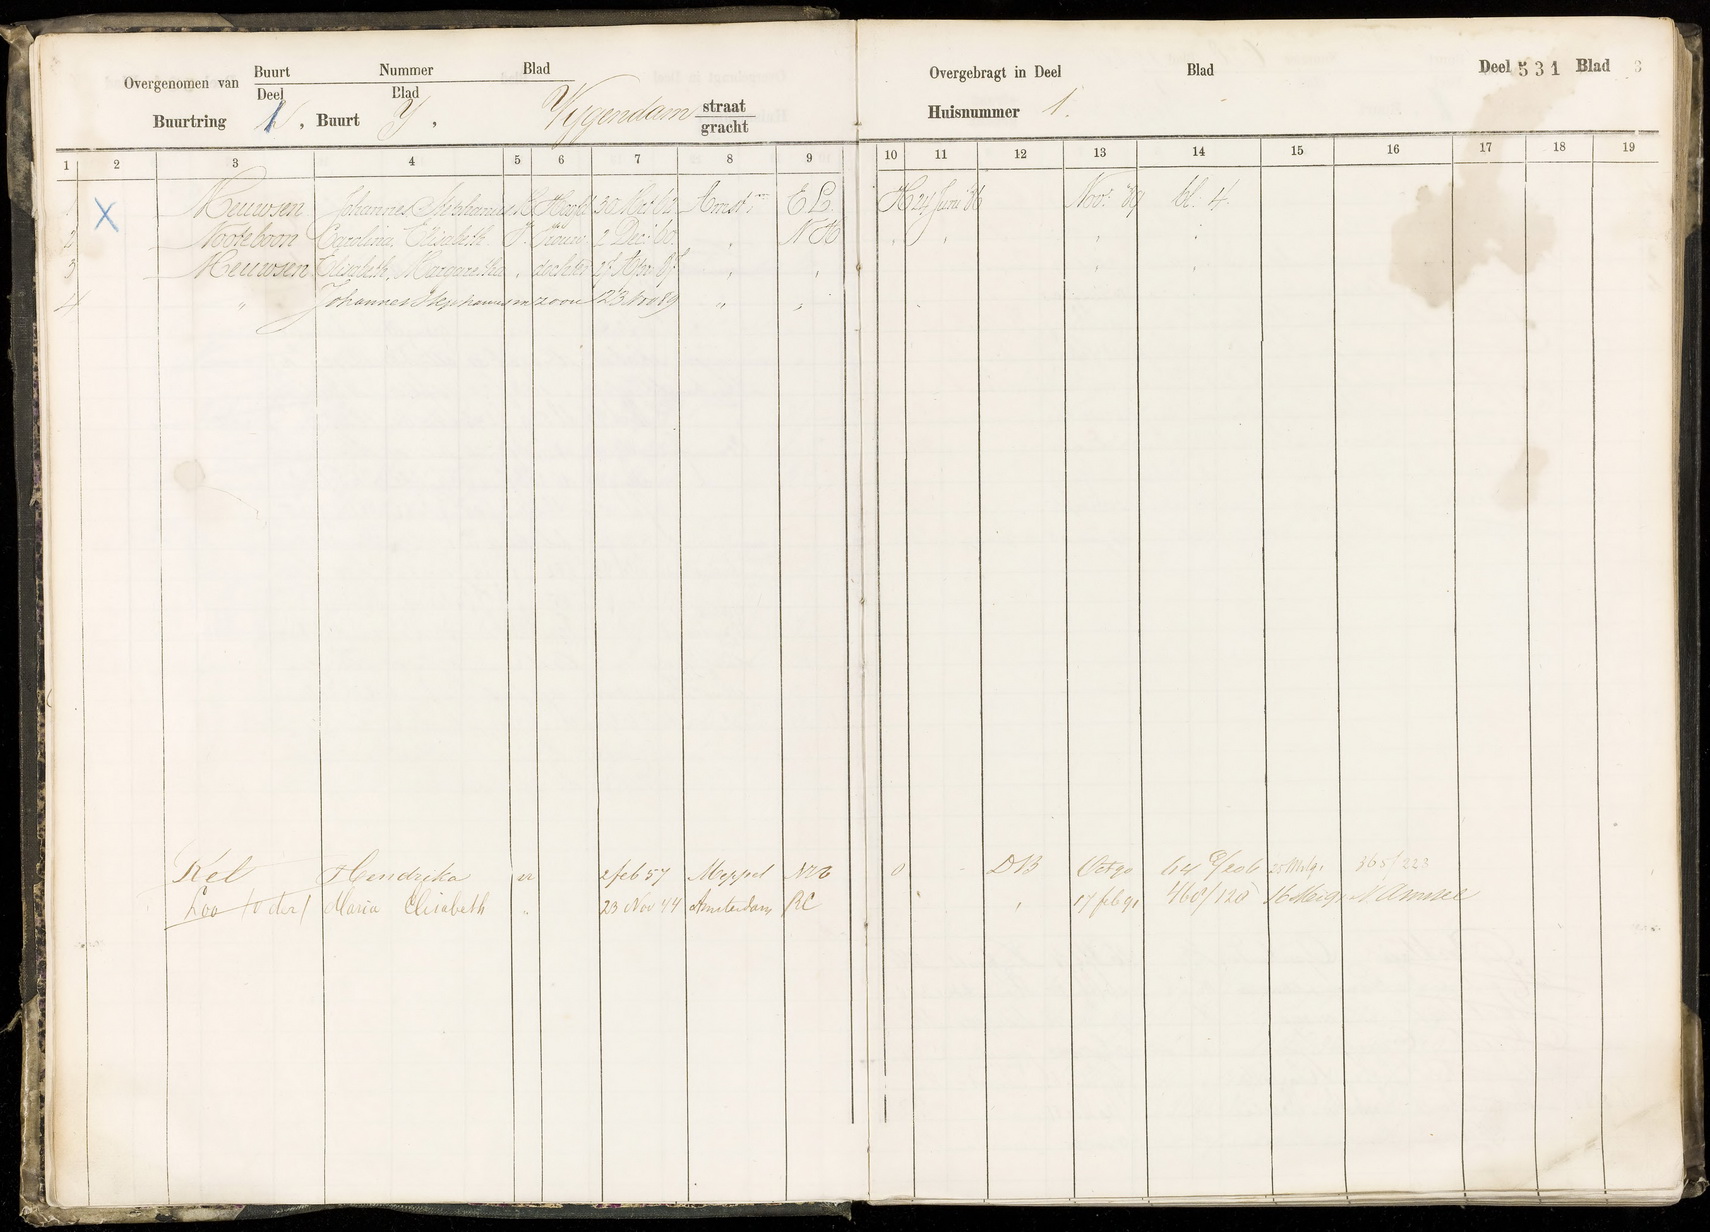 Overgenomen van Buurt Nummer Blad
Deel Blad
Buurtring , Buurt Y , Vijgendam straat
gracht
Overgebragt in Deel Blad Deel 531 Blad 3
Huisnummer 1.
1 2 3 4 5 6 7 8 9 10 11 12 13 14 15 16 17 18 19
1 X Meuwsen Johannes Stephanus M Hoofd 30 Oct 62 Amstm E L. H 24 Juni '86 Novr '89 bl. 4.
2 Nooteboon Carolina Elisabeth V. Vrouw 2 Dec: 60. " N H " " " "
3 Meuwsen Elisabeth, Margaretha " dochter " " " "
4 " Johannes Stephanus m zoon 23 Nov 89 " "
Kel Hendrika vr 2 feb 57 Meppel NH 0 DB Oct 90 365/223
Loo (v der) Maria Elisabeth " 23 Nov 44 Amsterdam RC " 17 feb 91 460/120 N Amstel